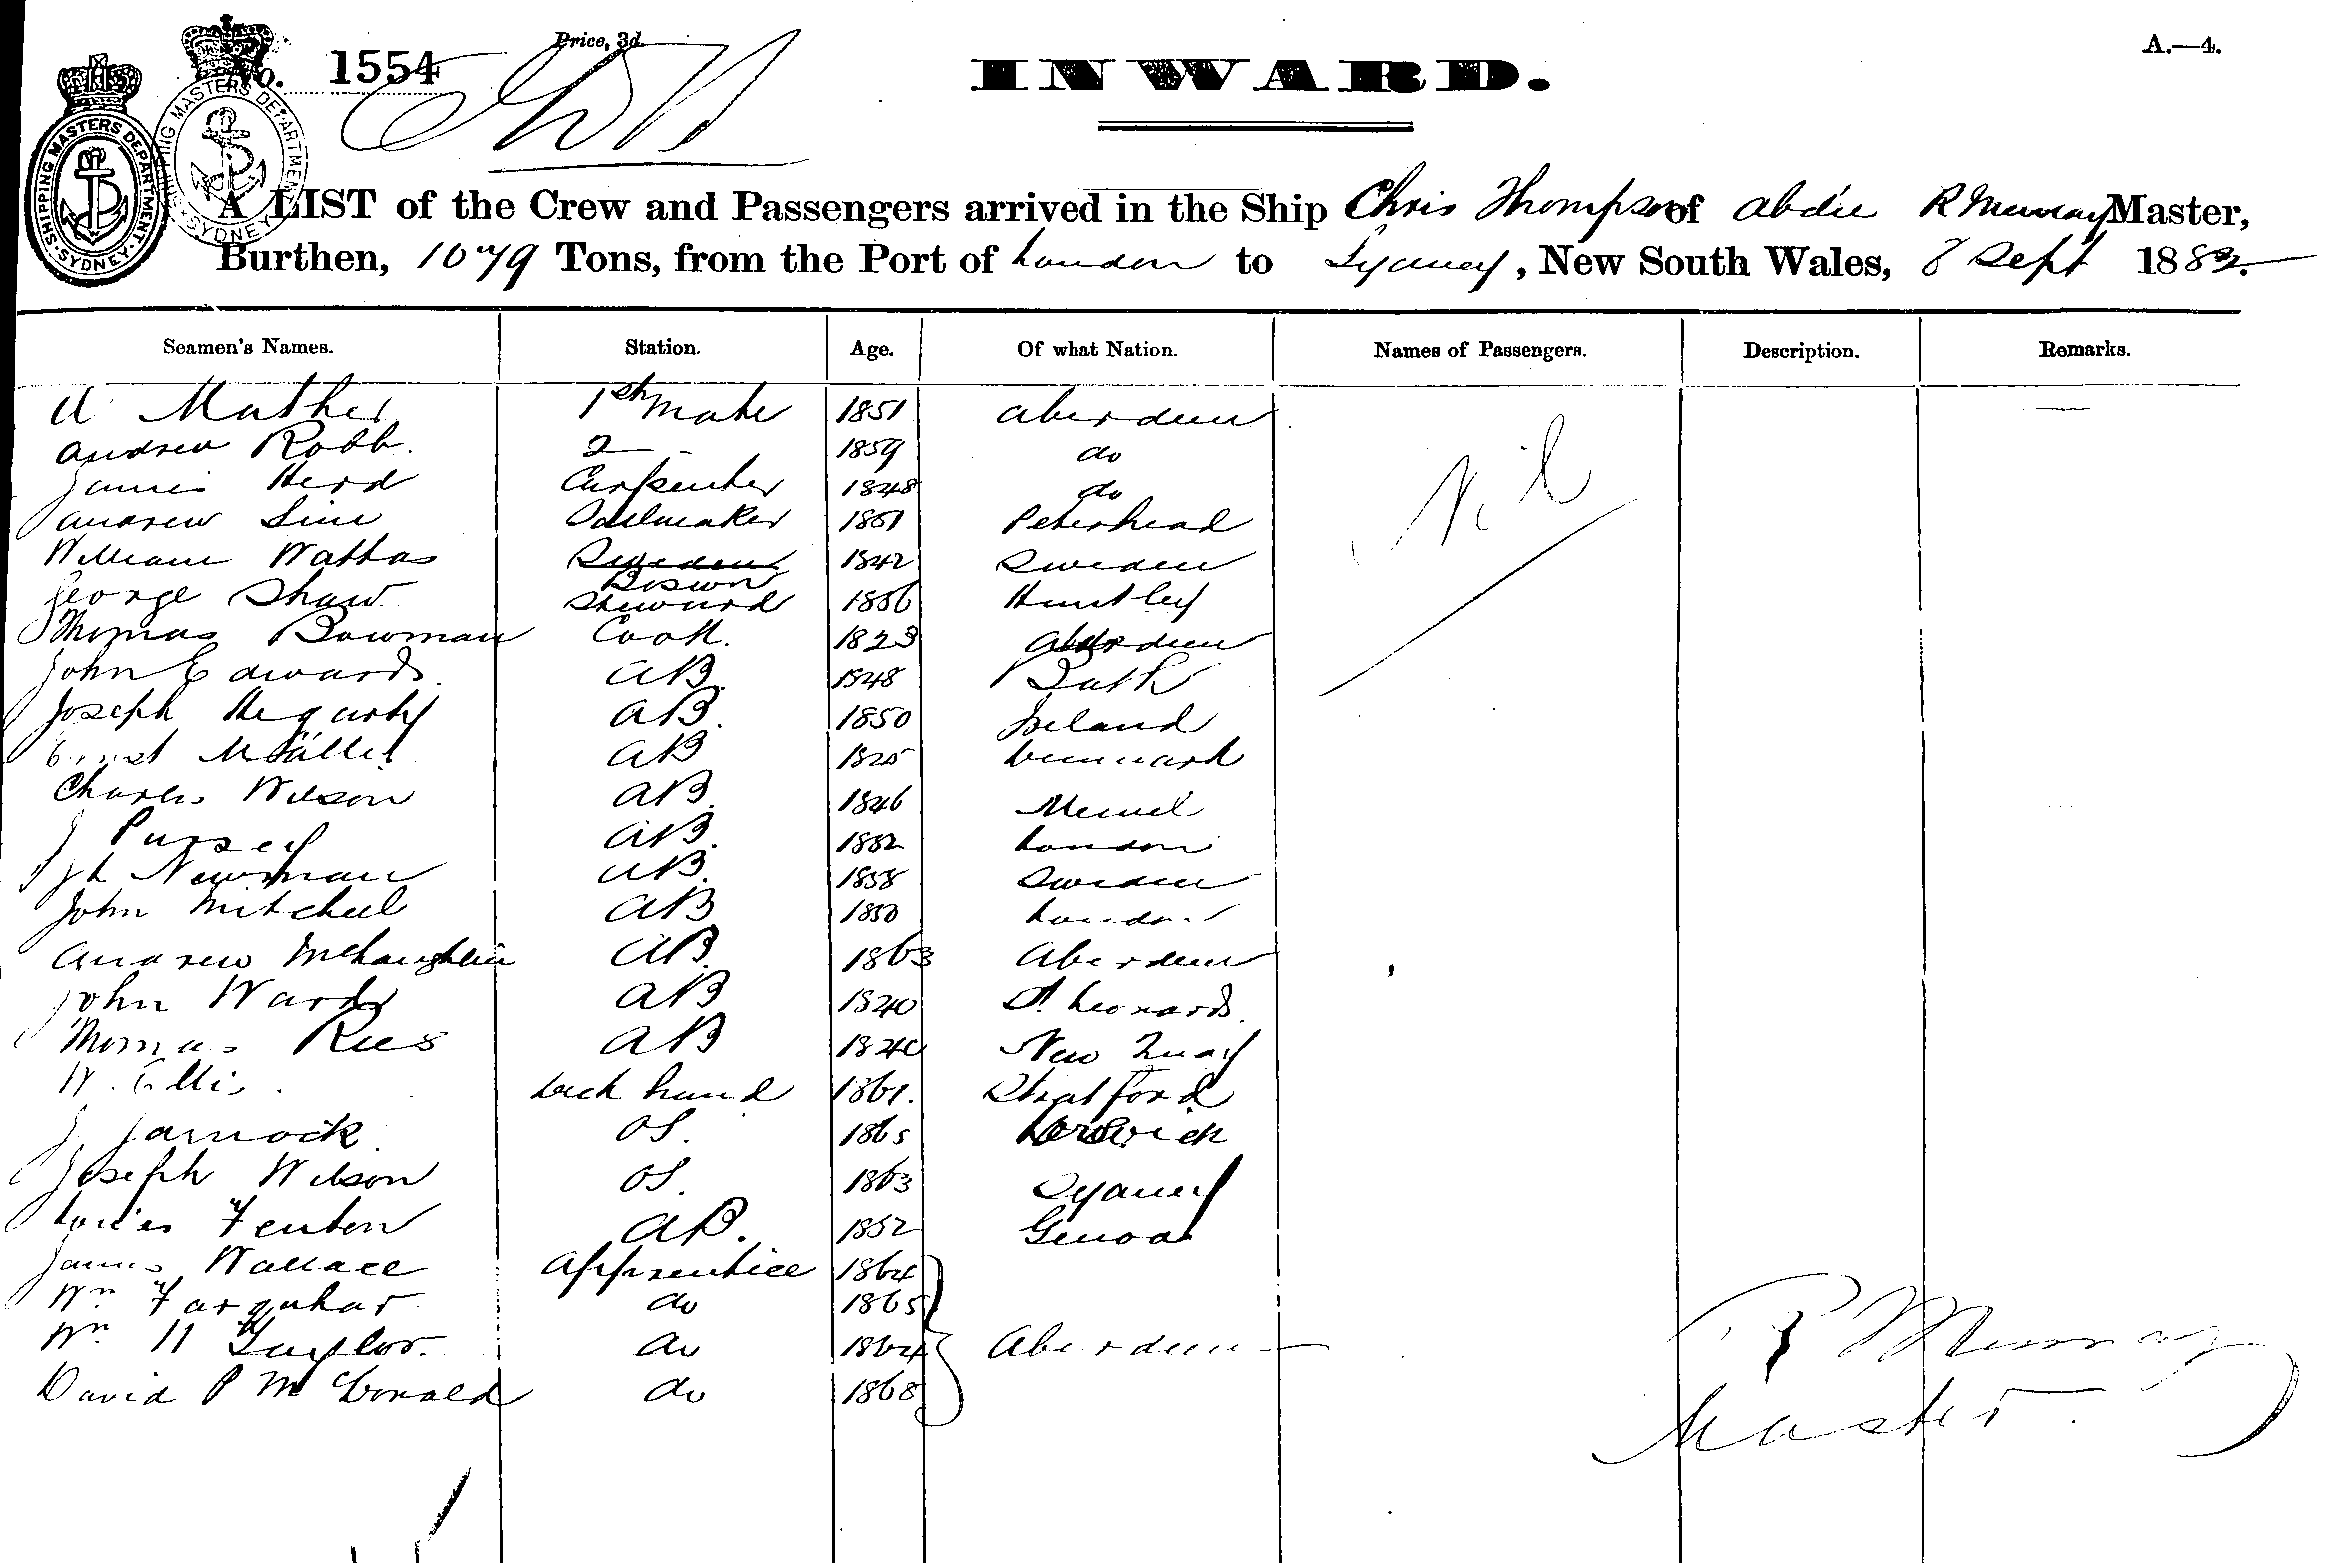 Price, 3d.
No. 1554
INWARD.
A.—4.
SHIPPING MASTERS DEPARTMENT. SYDNEY
SHIPPING MASTERS DEPARTMENT SYDNEY
A LIST of the Crew and Passengers arrived in the Ship Chris Thompson of Abdn R Murray Master,
Burthen, 1079 Tons, from the Port of London to Sydney, New South Wales, 8 Sept 1882.
Seamen's Names. Station. Age. Of what Nation. Names of Passengers. Description. Remarks.
A Mather 1st Mate 1851 Aberdeen
Andrew Robb. 2 1859 do
James Herd Carpenter 1848 do Nil
Andrew Sim Sailmaker 1861 Peterhead
William Wattas Sweden Boswn 1842 Sweden
George Shaw Steward 1856 Huntley
Thomas Bowman Cook. 1823 Aberdeen
John Edwards. AB. 1848 Bath
Joseph Hegarty AB. 1850 Ireland
Ernst AB 1825 Denmark
Charles Wilson AB. 1846 Memel
J Pursey AB. 1852 London
Newman AB. 1858 Sweden
John Mitchell AB 1850 London
Andrew McLaughlin AB. 1863 Aberdeen
John Ward AB 1840 St Leonards.
Thomas Rees AB 1840 New Quay
W. Ellis. Deck hand 1861. Stratford
J. Jamock. OS. 1865 Lerwick
Joseph Wilson OS. 1863 Sydney
Louis Fenton AB. 1852 Genoa
James Wallace Apprentice 1864
Wm Farquhar do 1865
Wm H Taylor. do 1864 Aberdeen
David P McDonald do 1868
R Murray
Master